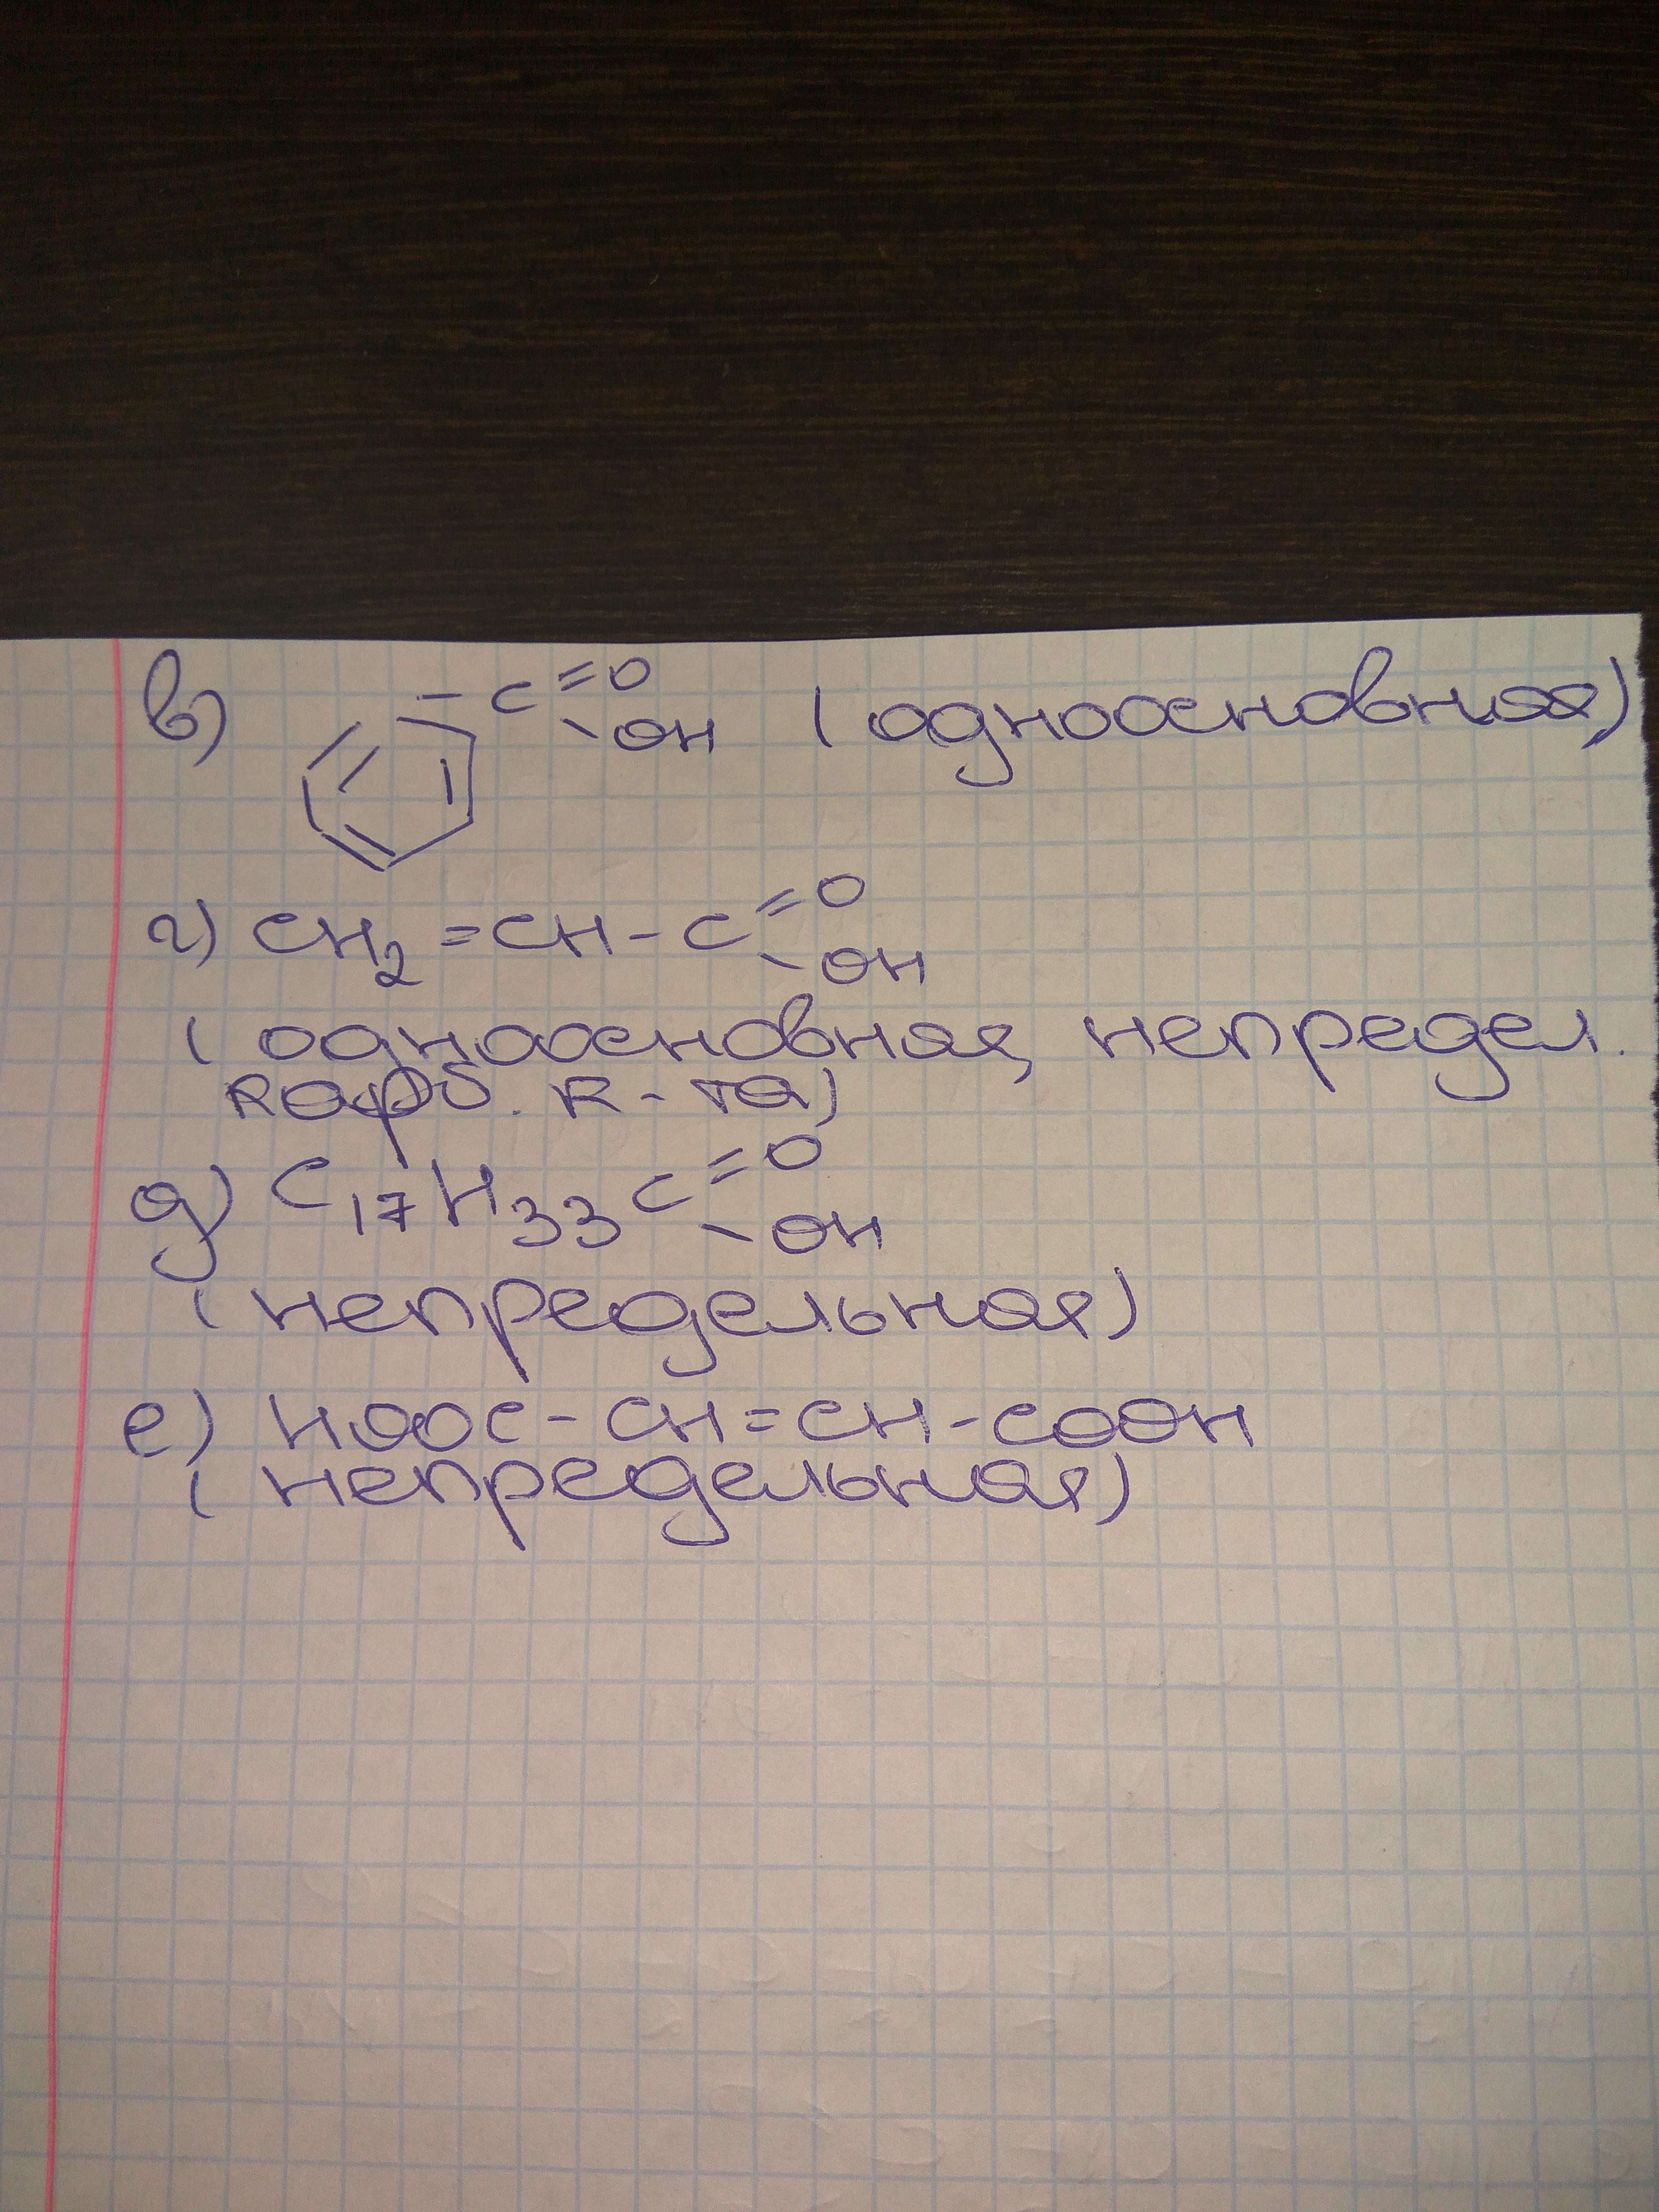 в) -C=O -OH (одноосновная)
г) CH2=CH-C=O -OH
(одноосновная, непредел.
карб. к-та)
д) C17H33C=O -OH
(непредельная)
е) HOOC-CH=CH-COOH
(непредельная)